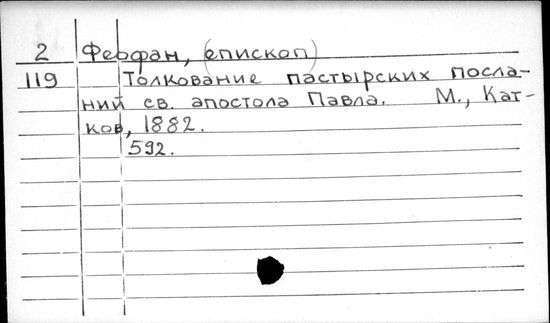 2 Феофан, (епископ)
119 Толкование пастырских посла-
ний св. апостола Павла. М., Кат-
ков, 1882.
592.